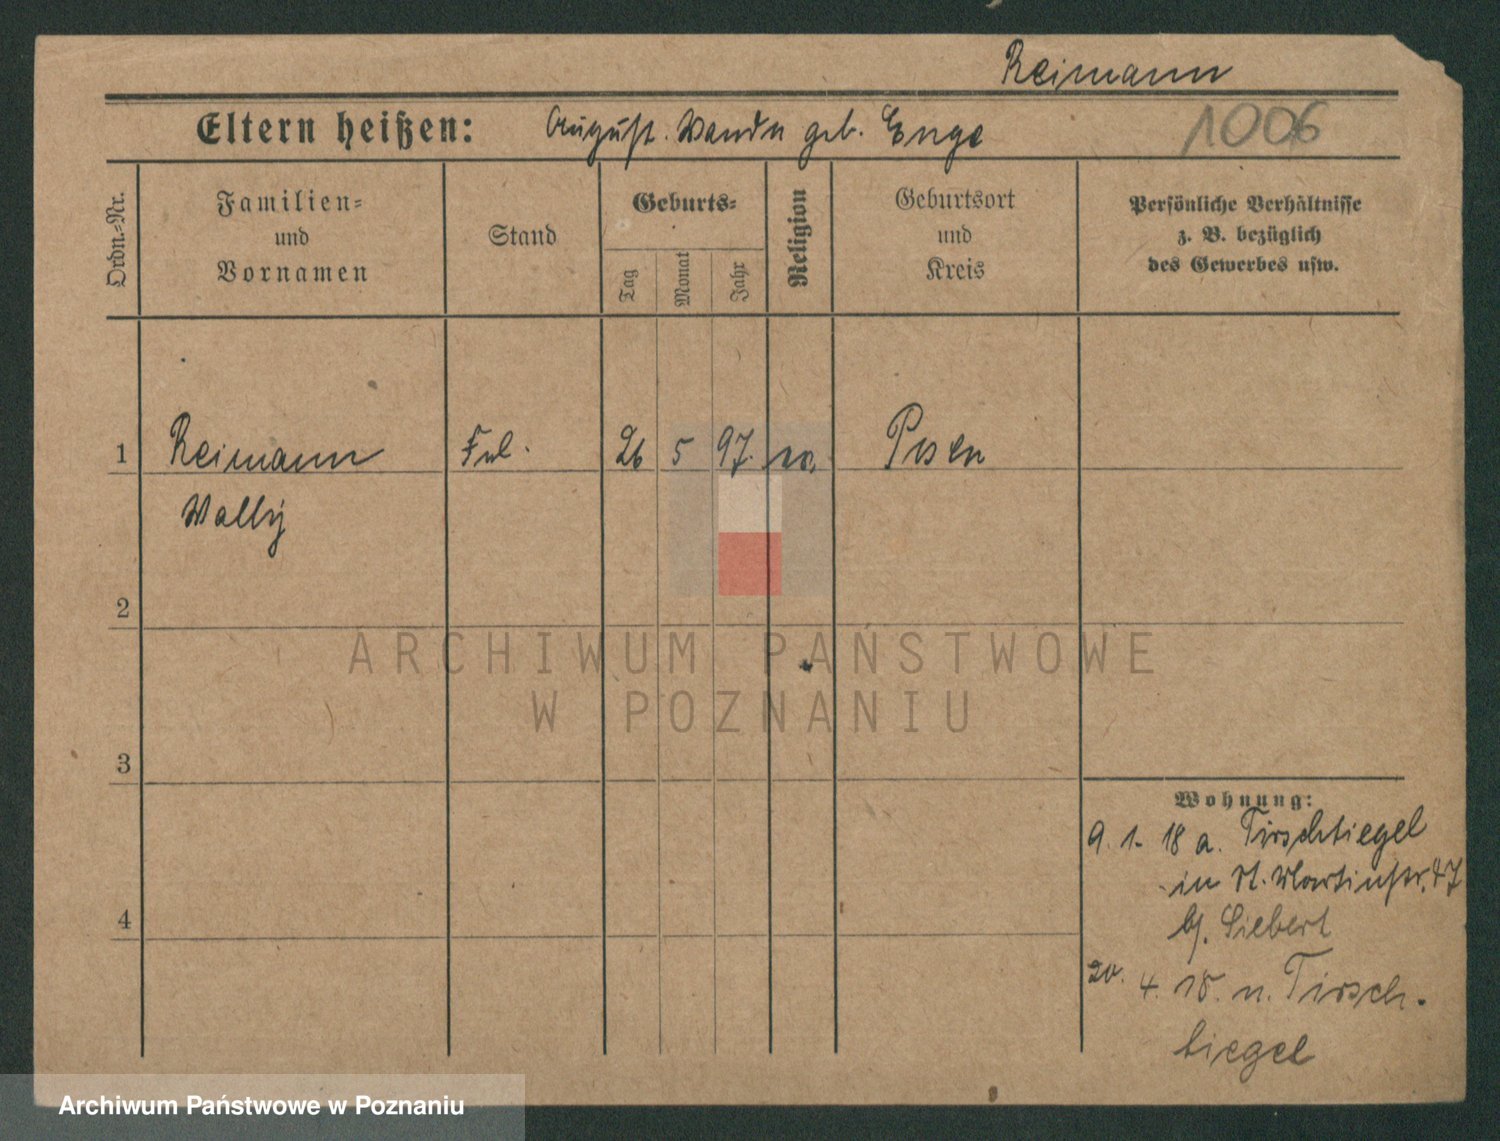 Reimann
Eltern heißen: August. Wanda geb. Enge
1006
Ordn.-Nr.
Familien=
und
Vornamen
Stand
Geburts=
Tag
Monat
Jahr
Religion
Geburtsort
und
Kreis
Persönliche Verhältnisse
z. B. bezüglich
des Gewerbes usw.
1 Reimann Frl. 26 5 97. ev. Posen
Wally
2
3
4
Wohnung:
9. 1. 18 a. Tirschtiegel
in St. Martinstr. 47
bj. Siebert
20. 4. 18. n. Tirsch.
tiegel
ARCHIWUM PAŃSTWOWE
W POZNANIU
Archiwum Państwowe w Poznaniu